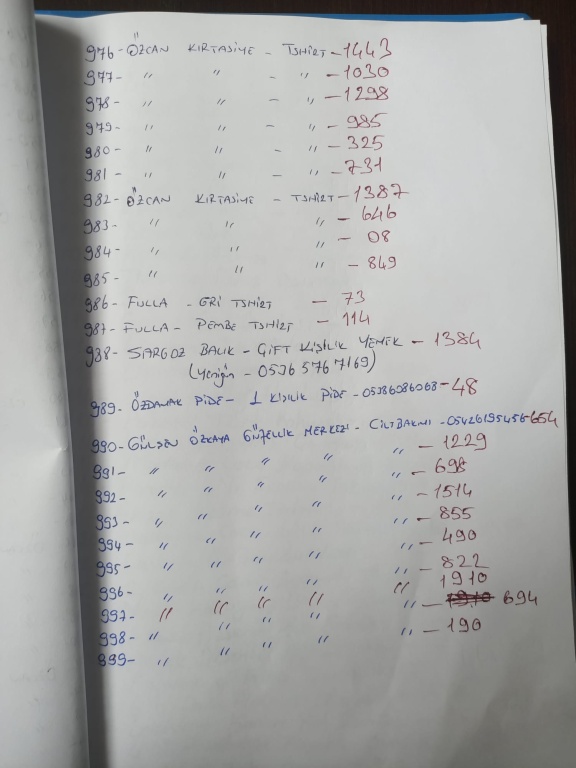 976- ÖZCAN KIRTASİYE - TSHİRT - 1443
977- " " - " - 1030
978- " " - " - 1298
979- " " - " - 985
980- " " - " - 325
981- " " - " - 731
982- ÖZCAN KIRTASİYE - TSHİRT - 1387
983- " " " - 646
984- " " " - 08
985- " " " - 849
986- FULLA - GRİ TSHİRT - 73
987- FULLA - PEMBE TSHİRT - 114
988- SARGOZ BALIK - ÇİFT KİŞİLİK YEMEK - 1384
(Yeniğin - 0536 576 7169)
989- ÖZDAMAK PİDE - 1 KİŞİLİK PİDE - 05386086068 - 48
990- GÜLŞEN ÖZKAYA GÜZELLİK MERKEZİ - CİLTBAKIMI - 05426195456 - 654
991- " " " " " - 1229
992- " " " " " - 698
993- " " " " " - 1514
994- " " " " " - 855
995- " " " " " - 490
996- " " " " " - 822
997- " " " " " 1910
998- " " " " " - 1910 694
999- " " " " " - 190